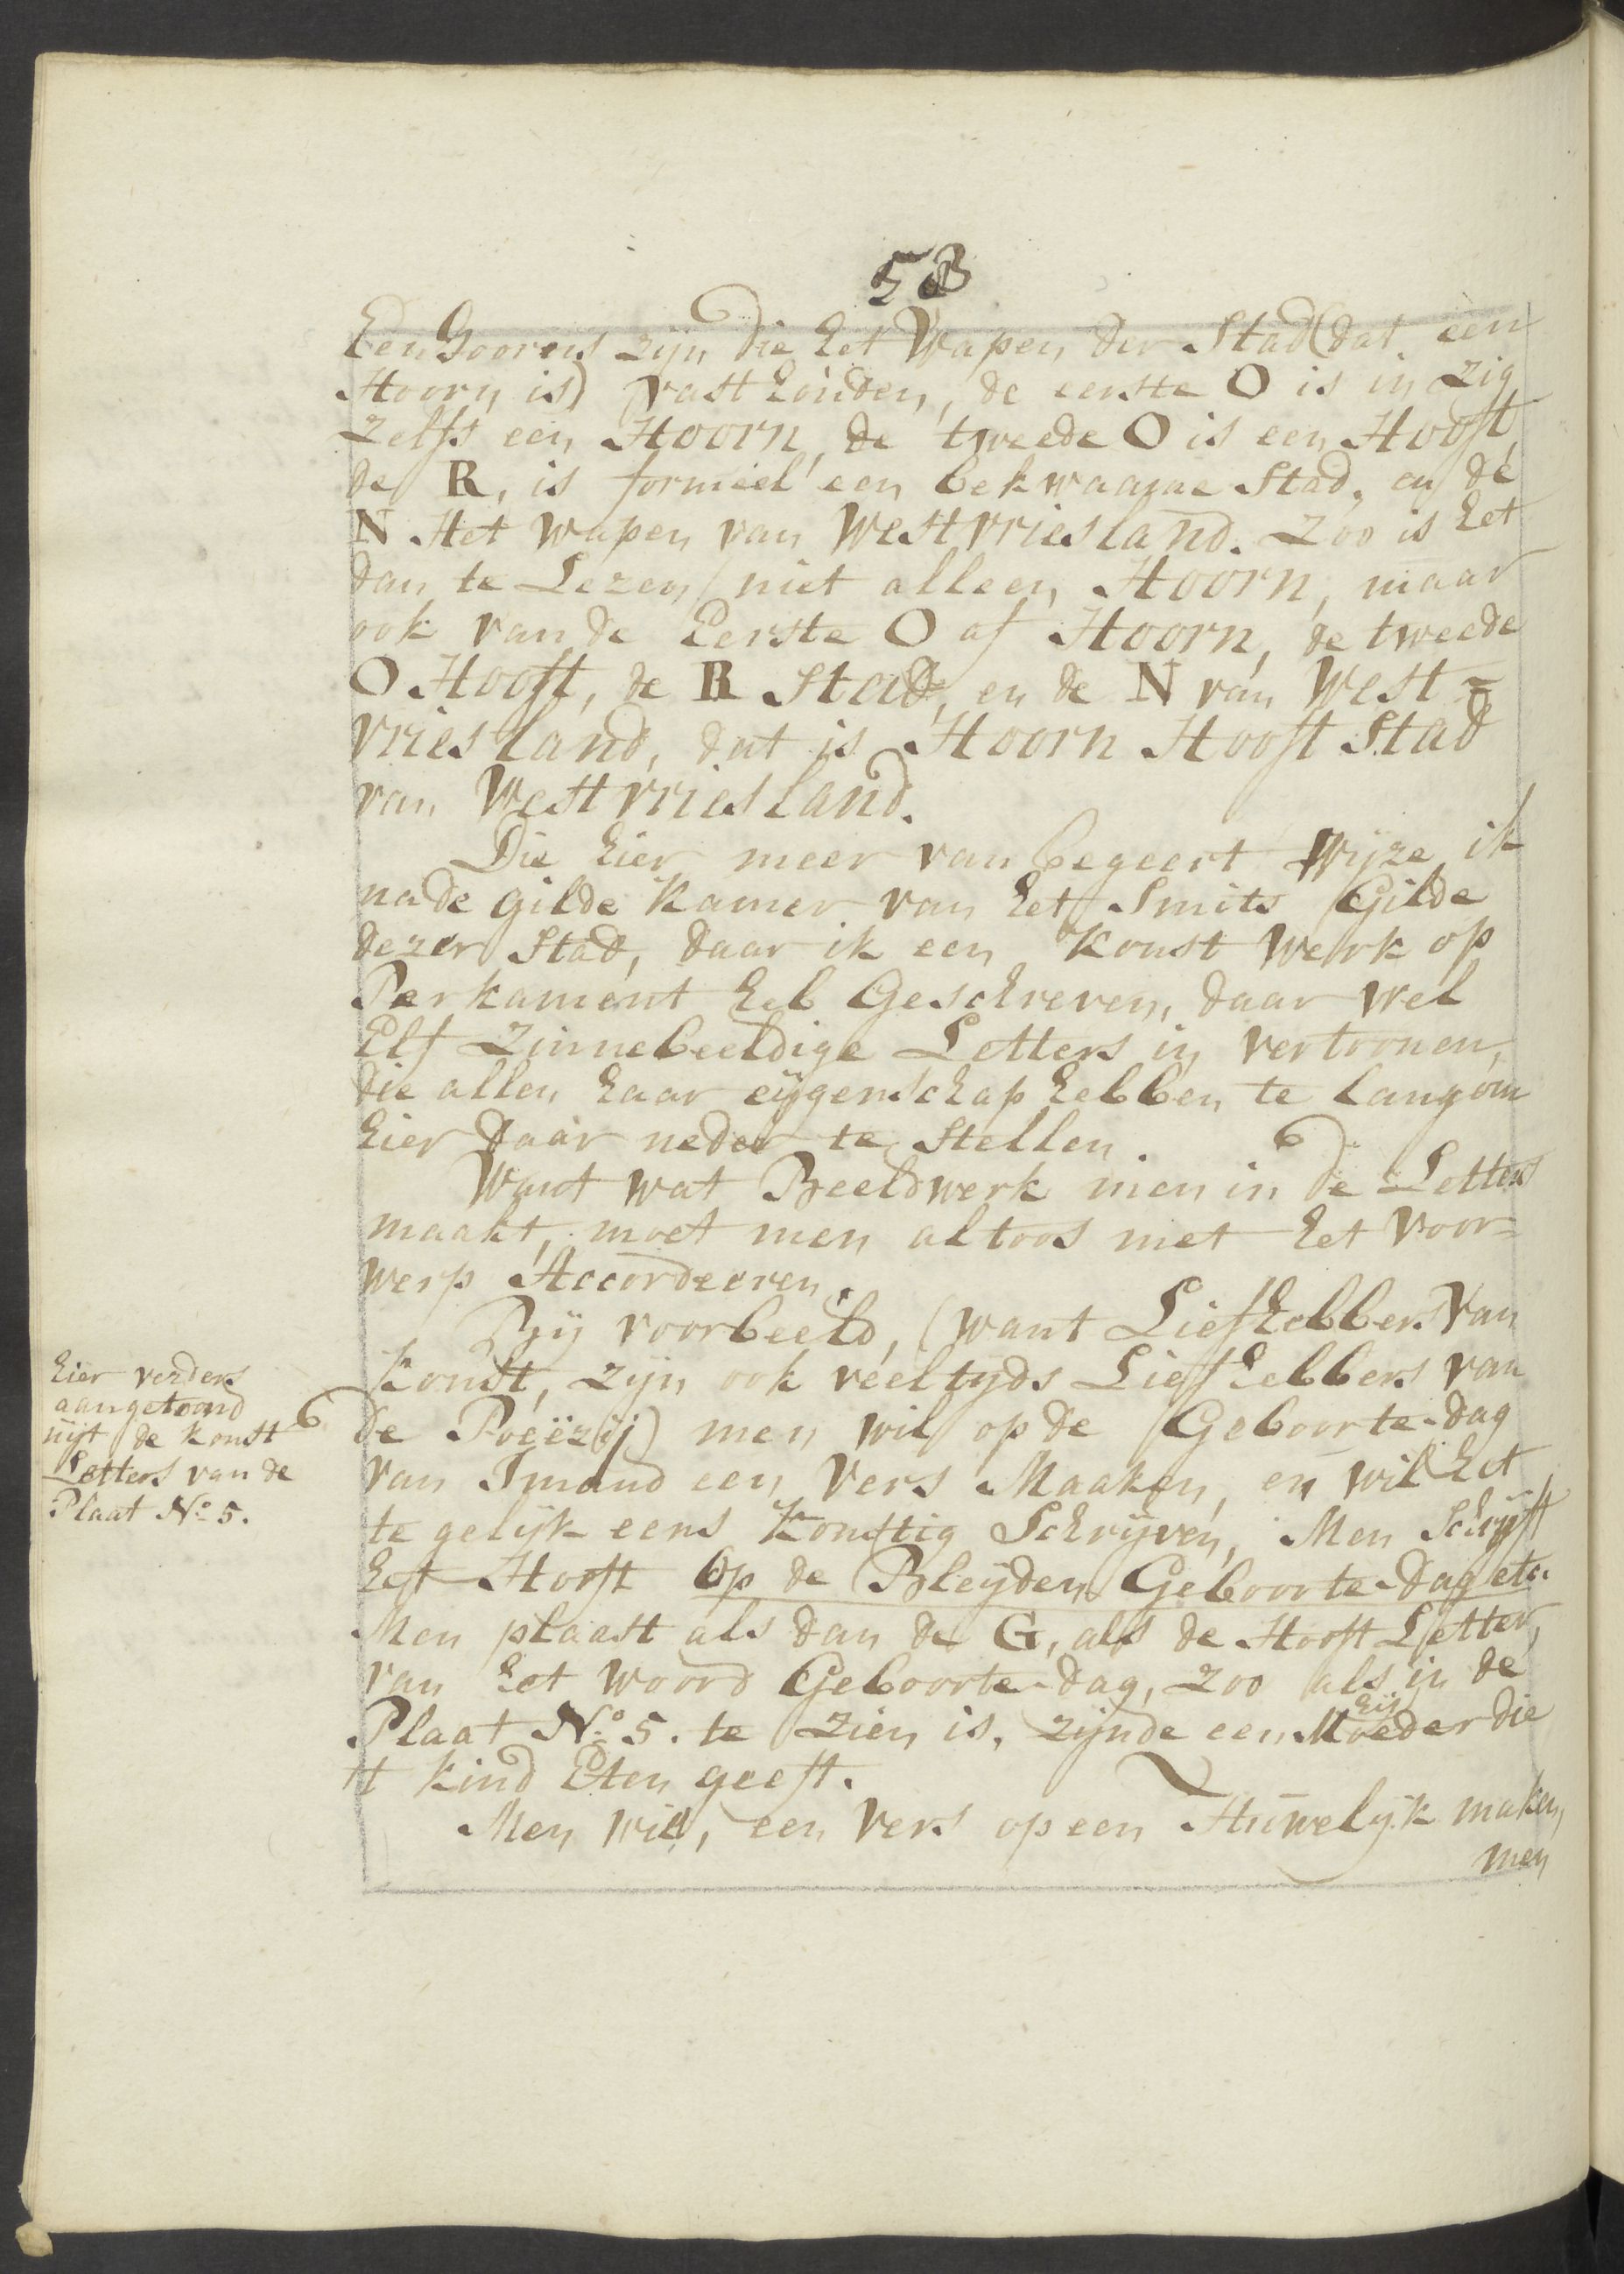 58
Eenhoorens zijn die het Wapen der Stad (dat een
Hoorn is) vast houden, de eerste O is in zig
zelfs een Hoorn, de tweede O is een Hooft,
de R, is formeel een bekwaame Stad, en de
N Het Wapen van Westvriesland. Zoo is het
dan te Lezen niet alleen Hoorn, maar
ook van de Eerste O af Hoorn, de tweede
O Hooft, de R Stad, en de N van West=
vriesland, dat is Hoorn Hooft Stad
van Westvriesland.
Die hier meer van begeert wijze ik
na de gilde Kamer van het Smits Gilde
dezer Stad, daar ik een Konst Werk op
Perkament heb Geschreven, daar wel
Elf Zinnebeeldige Letters in vertoonen,
die allen haar eijgenschap hebben te lang om
hier daar neder te Stellen.
Want wat Beeldwerk men in de Letters
maakt, moet men altoos met het voor=
werp Accordeeren.
Bij voorbeeld, (want Liefhebbers van
Konst, zijn ook veeltyds Liefhebbers van
de Poëëzij) men wil op de Geboorte-dag
van Imand een Vers Maaken, en wil het
te gelijk eens Konstig Schrijven, Men Schrijft
het Hooft Op de Bleijden Geboorte-dag etc.
Men plaast als dan de G, als de Hooft Letter,
van het woord Geboorte-dag, zoo als in de
Plaat No. 5. te zien is, zijnde een Moeder die
hijr
't kind Eten geeft.
Men wil, een Vers op een Huwelyk maken,
men
hier verders
aangetoond
uijt de konst
Letters van de
Plaat No. 5.